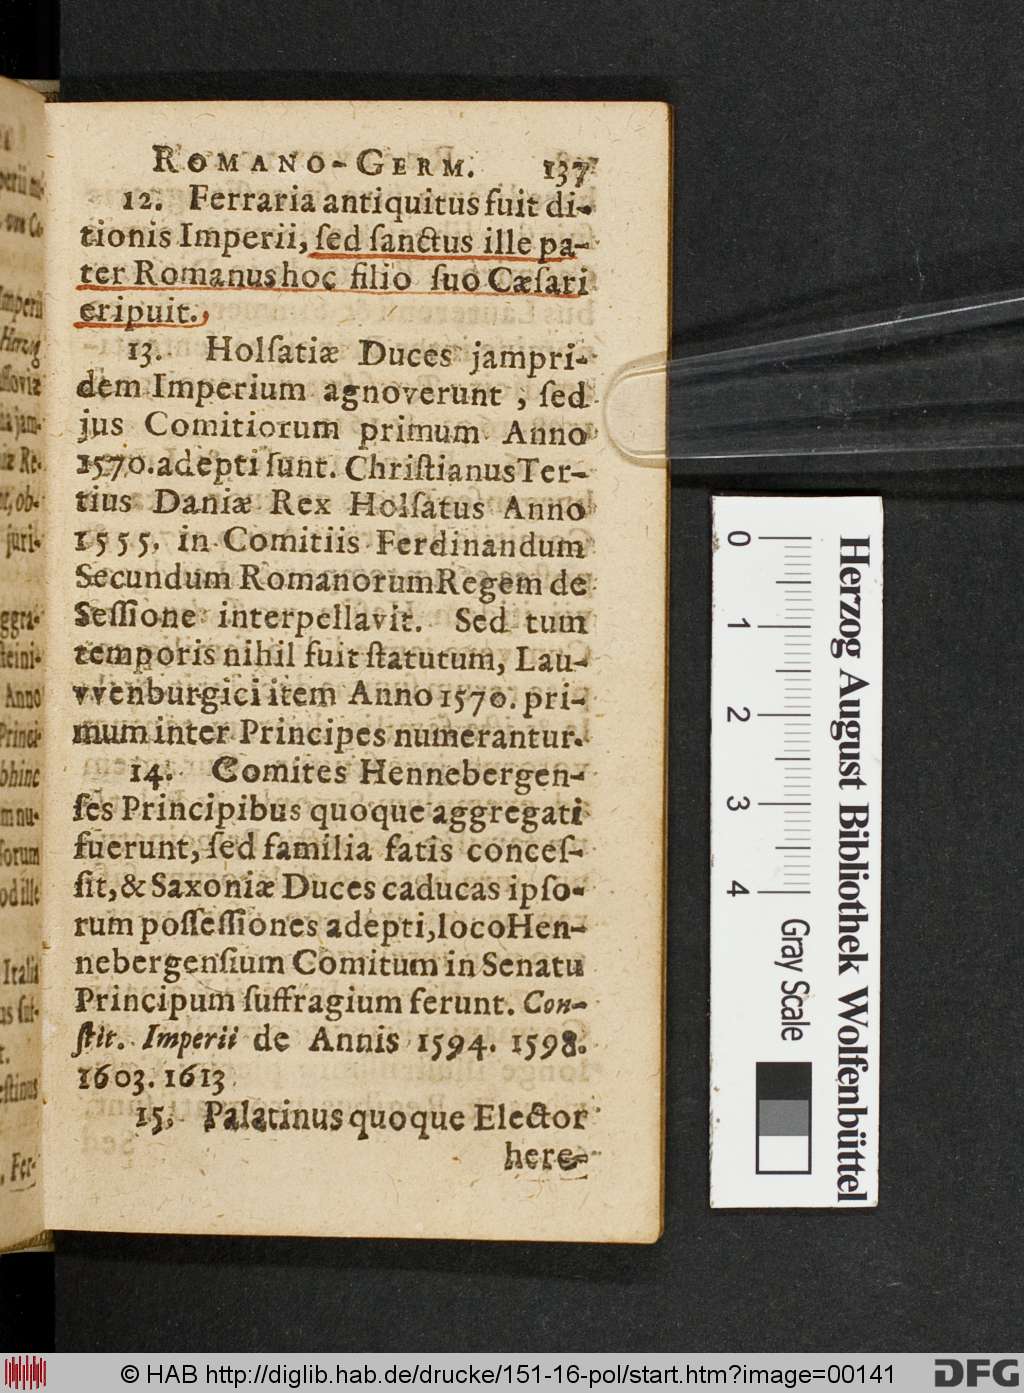 ROMANO-GERM. 137
12. Ferraria antiquitus fuit di-
tionis Imperii, ſed ſanctus ille pa-
ter Romanus hoc filio ſuo Cæſari
eripuit.,
13. Holſatiæ Duces jampri-
dem Imperium agnoverunt, ſed
jus Comitiorum primum Anno
1570. adepti ſunt. Chriſtianus Ter-
tius Daniæ Rex Holſatus Anno
1555, in Comitiis Ferdinandum
Secundum Romanorum Regem de
Seſſione interpellavit. Sed tum
temporis nihil fuit ſtatutum, Lau-
vvenburgici item Anno 1570. pri-
mum inter Principes numerantur.
14. Comites Hennebergen-
ſes Principibus quoque aggregati
fuerunt, ſed familia fatis conceſ-
ſit, & Saxoniæ Duces caducas ipſo-
rum poſſeſſiones adepti, loco Hen-
nebergenſium Comitum in Senatu
Principum ſuffragium ferunt. Con-
ſtit. Imperii de Annis 1594. 1598.
1603. 1613
15, Palatinus quoque Elector
here-
0 1 2 3 4
Gray Scale
Herzog August Bibliothek Wolfenbüttel
© HAB http://diglib.hab.de/drucke/151-16-pol/start.htm?image=00141
DFG